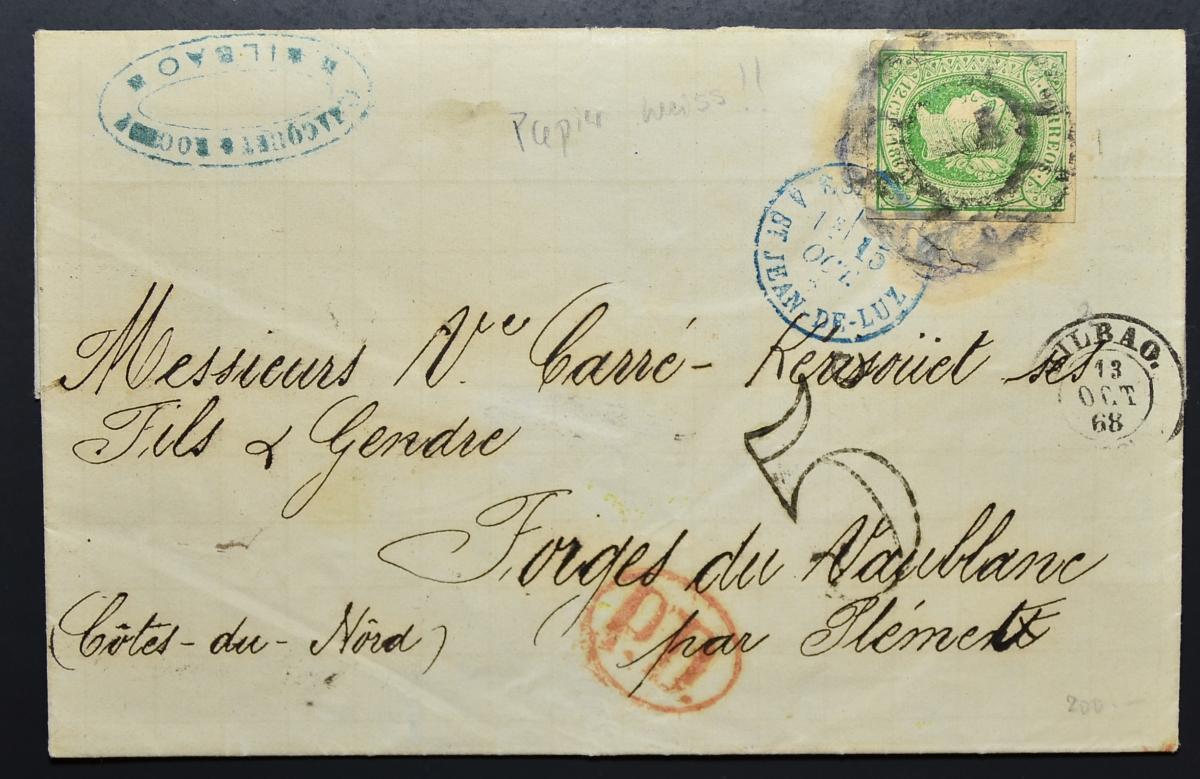 BILBAO
JACQUET & ROCHT
Papier weiss!!
CORREOS
12 CUARTOS
A ST JEAN-DE-LUZ
15
OCT.
BILBAO.
13
OCT
68
Messieurs Ve Carré-Kerisoüet ses
Fils & Gendre
5
Forges du Vaublanc
(Côtes-du-Nôrd) par Plémet
P.D.
200.—